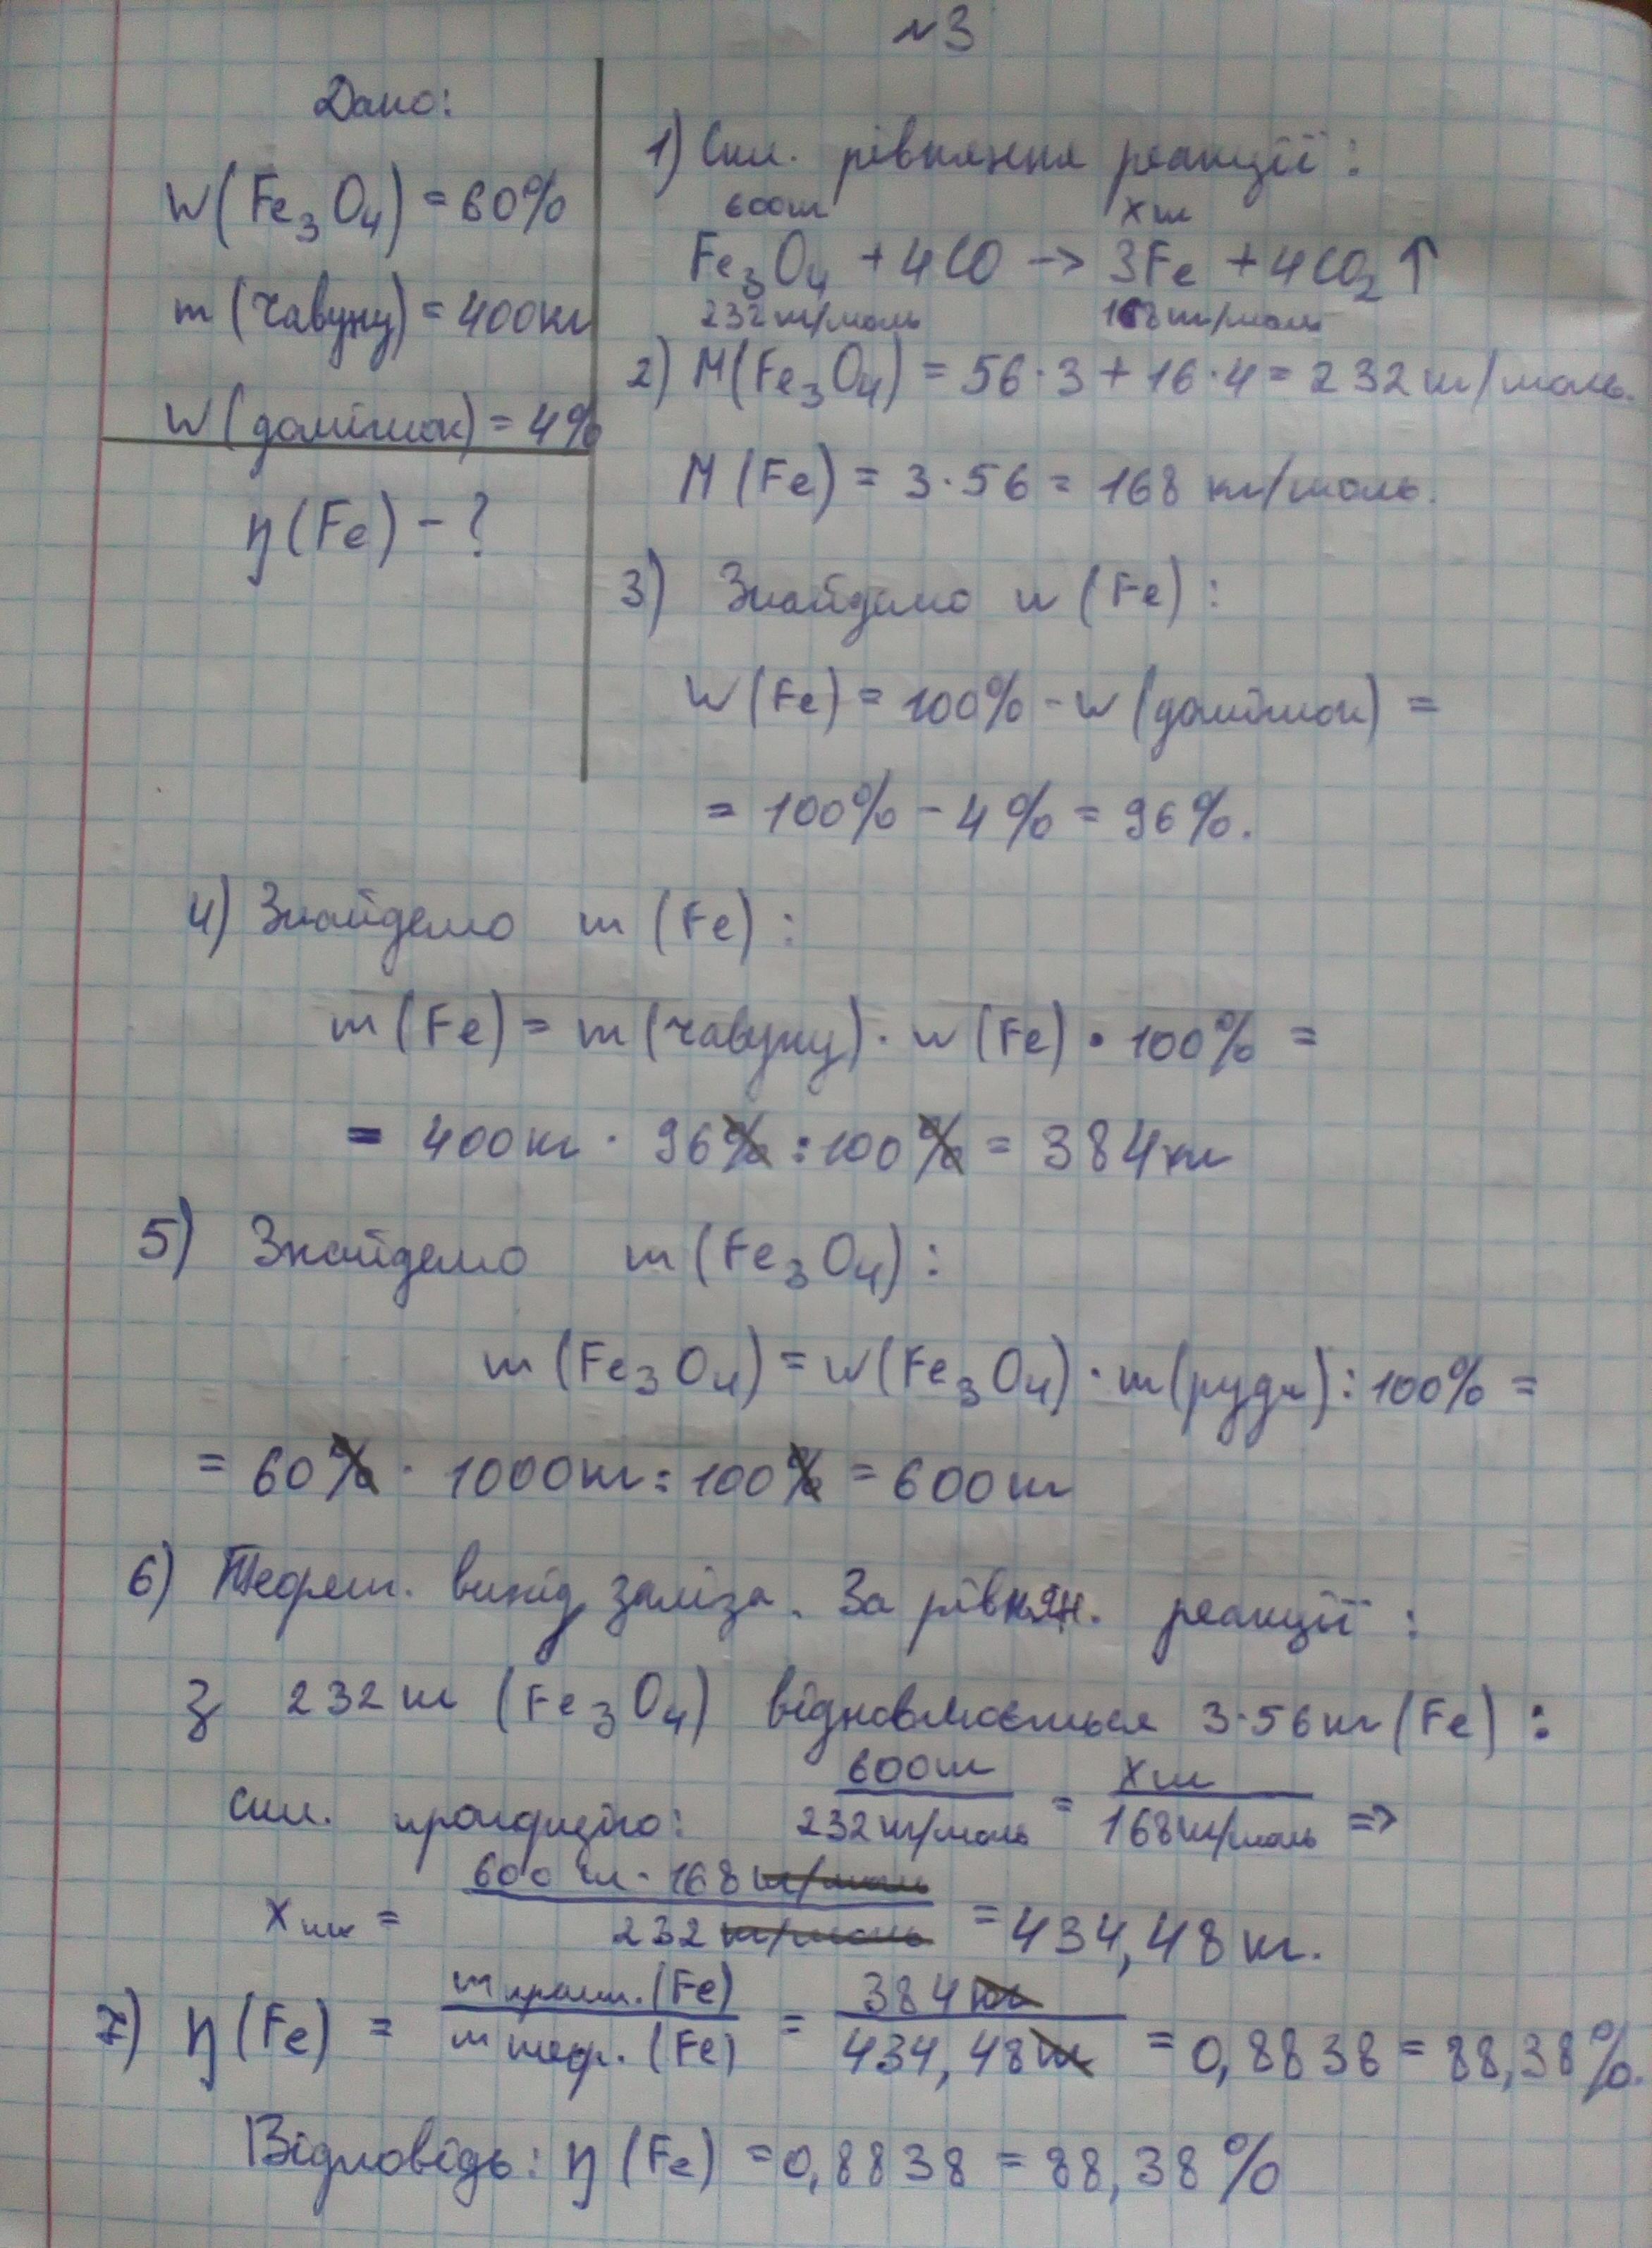 №3
Дано:
W(Fe₃O₄) = 60%
m(чавуну) = 400кг
W(домішок) = 4%
η(Fe) - ?
1) Скл. рівняння реакції:
600кг xкг
Fe₃O₄ + 4CO → 3Fe + 4CO₂↑
232кг/моль 168кг/моль
2) M(Fe₃O₄) = 56·3 + 16·4 = 232кг/моль.
M(Fe) = 3·56 = 168 кг/моль.
3) Знайдемо w(Fe):
W(Fe) = 100% - W(домішок) =
= 100% - 4% = 96%.
4) Знайдемо m(Fe):
m(Fe) = m(чавуну) · w(Fe) · 100% =
= 400кг · 96% : 100% = 384кг
5) Знайдемо m(Fe₃O₄):
m(Fe₃O₄) = W(Fe₃O₄) · m(руди) : 100% =
= 60% · 1000кг : 100% = 600кг
6) Теорет. вихід заліза. За рівнян. реакції:
З 232кг (Fe₃O₄) відновлюється 3·56кг (Fe):
скл. пропорцію: 600кг/232кг/моль = xкг/168кг/моль =>
xкг = 600кг · 168кг/моль / 232кг/моль = 434,48кг.
7) η(Fe) = m практ.(Fe) / m теор.(Fe) = 384кг / 434,48кг = 0,8838 = 88,38%.
Відповідь: η(Fe) = 0,8838 = 88,38%